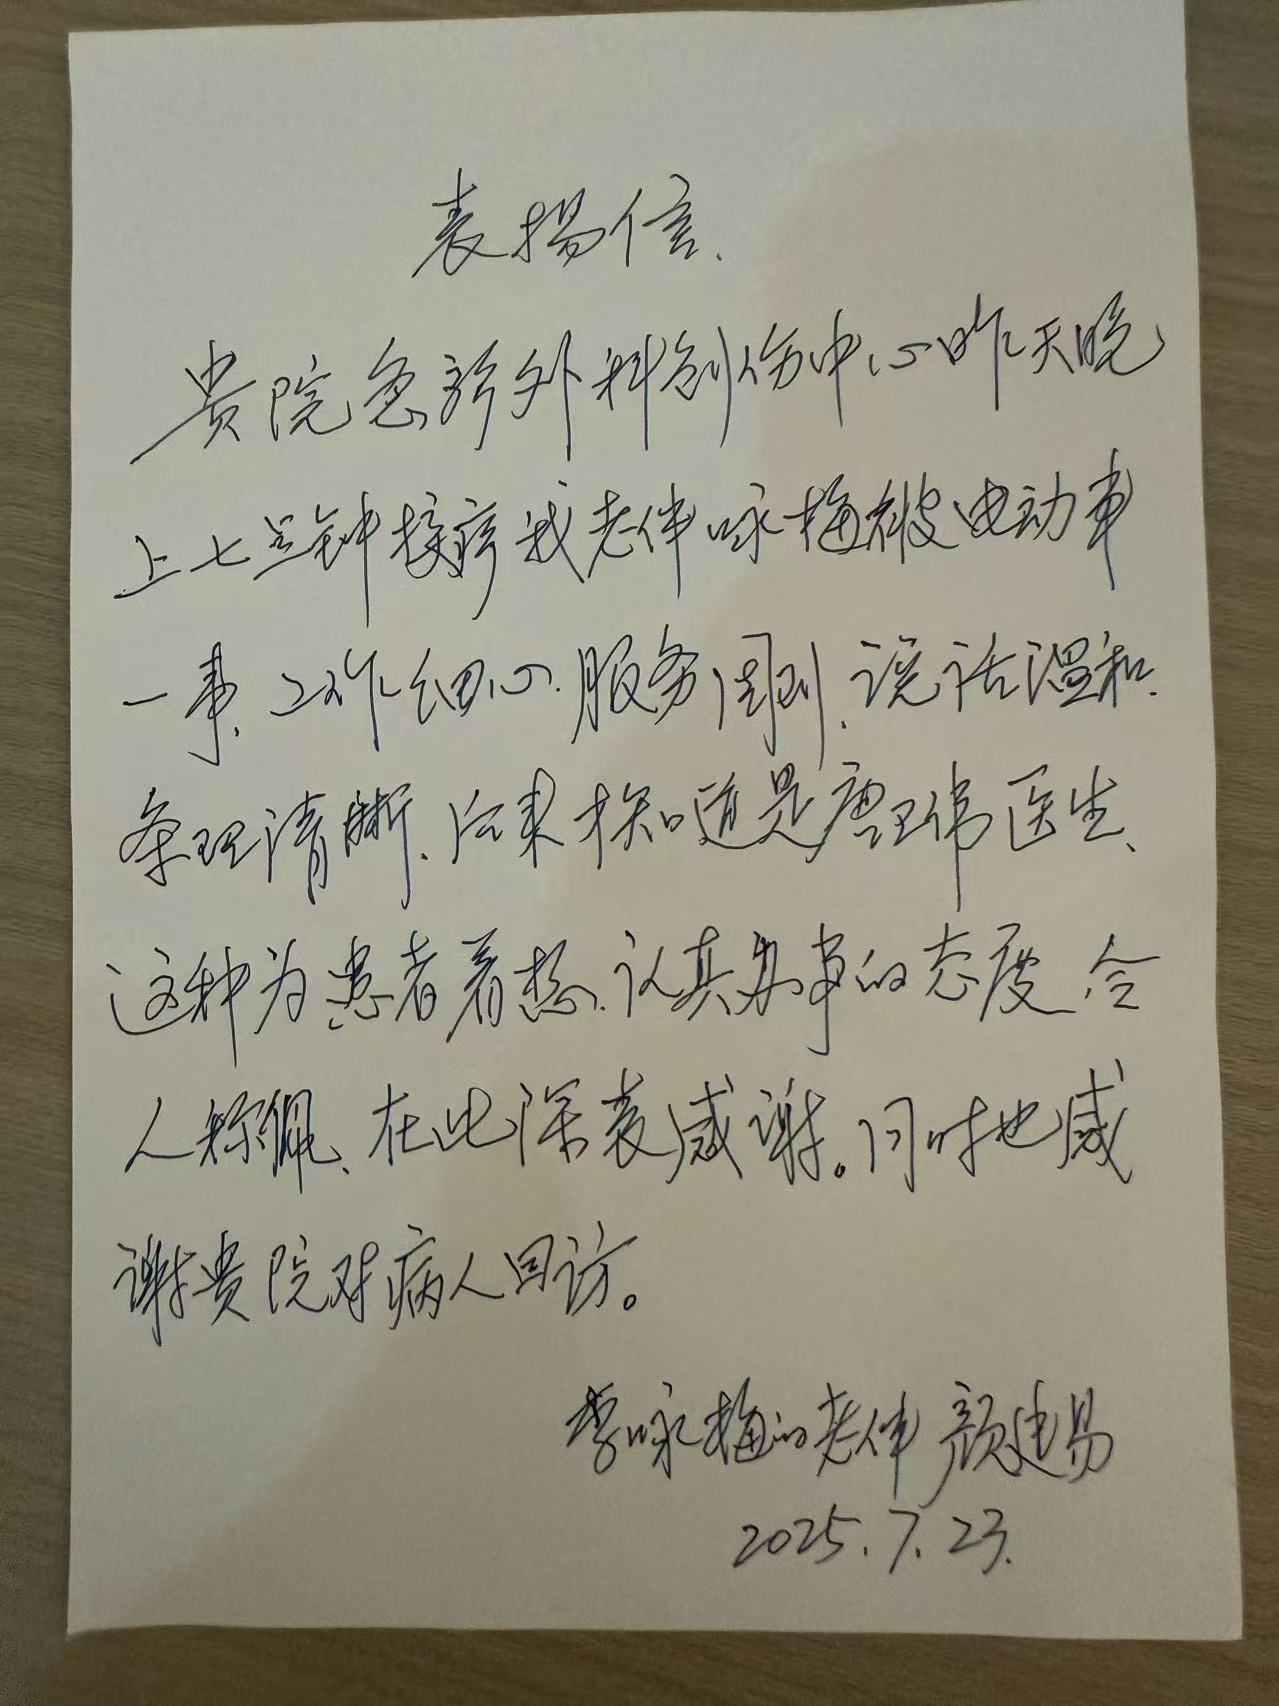 表扬信.
贵院急诊外科创伤中心昨天晚
上七点钟接诊我老伴咏梅被电动车
一事、工作细心.服务周到、说话温和.
条理清晰、后来才知道是唐玉伟医生、
这种为患者着想、认真办事的态度、令
人称佩、在此深表感谢。同时也感
谢贵院对病人回访。
李咏梅的老伴 颜建易
2025.7.23.